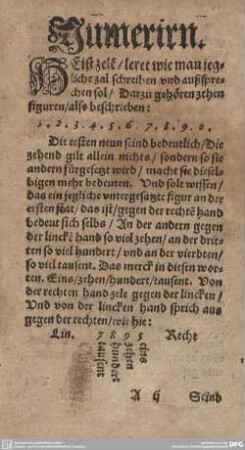 Numerirn.
HEist zelē / leret wie man jeg-
liche zal schreiben vnd außspre-
chen sol / Darzu gehören zehen
figuren / also beschrieben:
1. 2. 3. 4. 5. 6. 7. 8. 9. 0.
Die ersten neun seind bedeutlich / Die
zehend gilt allein nichts / sondern so sie
andern fürgesetzt wird / macht sie dieselb-
igen mehr bedeuten. Vnd solt wissen /
das ein jegliche vntergesatzte figur an der
ersten stat / das ist / gegen der rechtē hand
bedeut sich selbs / An der andern gegen
der linckē hand so viel zehen / an der drit-
ten so viel hundert / vnd an der vierdten /
so viel tausent. Das merck in diesen wor-
ten. Eins / zehen / hundert / tausent. Von
der rechten hand zele gegen der lincken /
Vnd von der lincken hand sprich aus
gegen der rechten / wie hie:
Lin. 7 8 9 5 Recht
tausent hundert zehen eins
A ij Seind